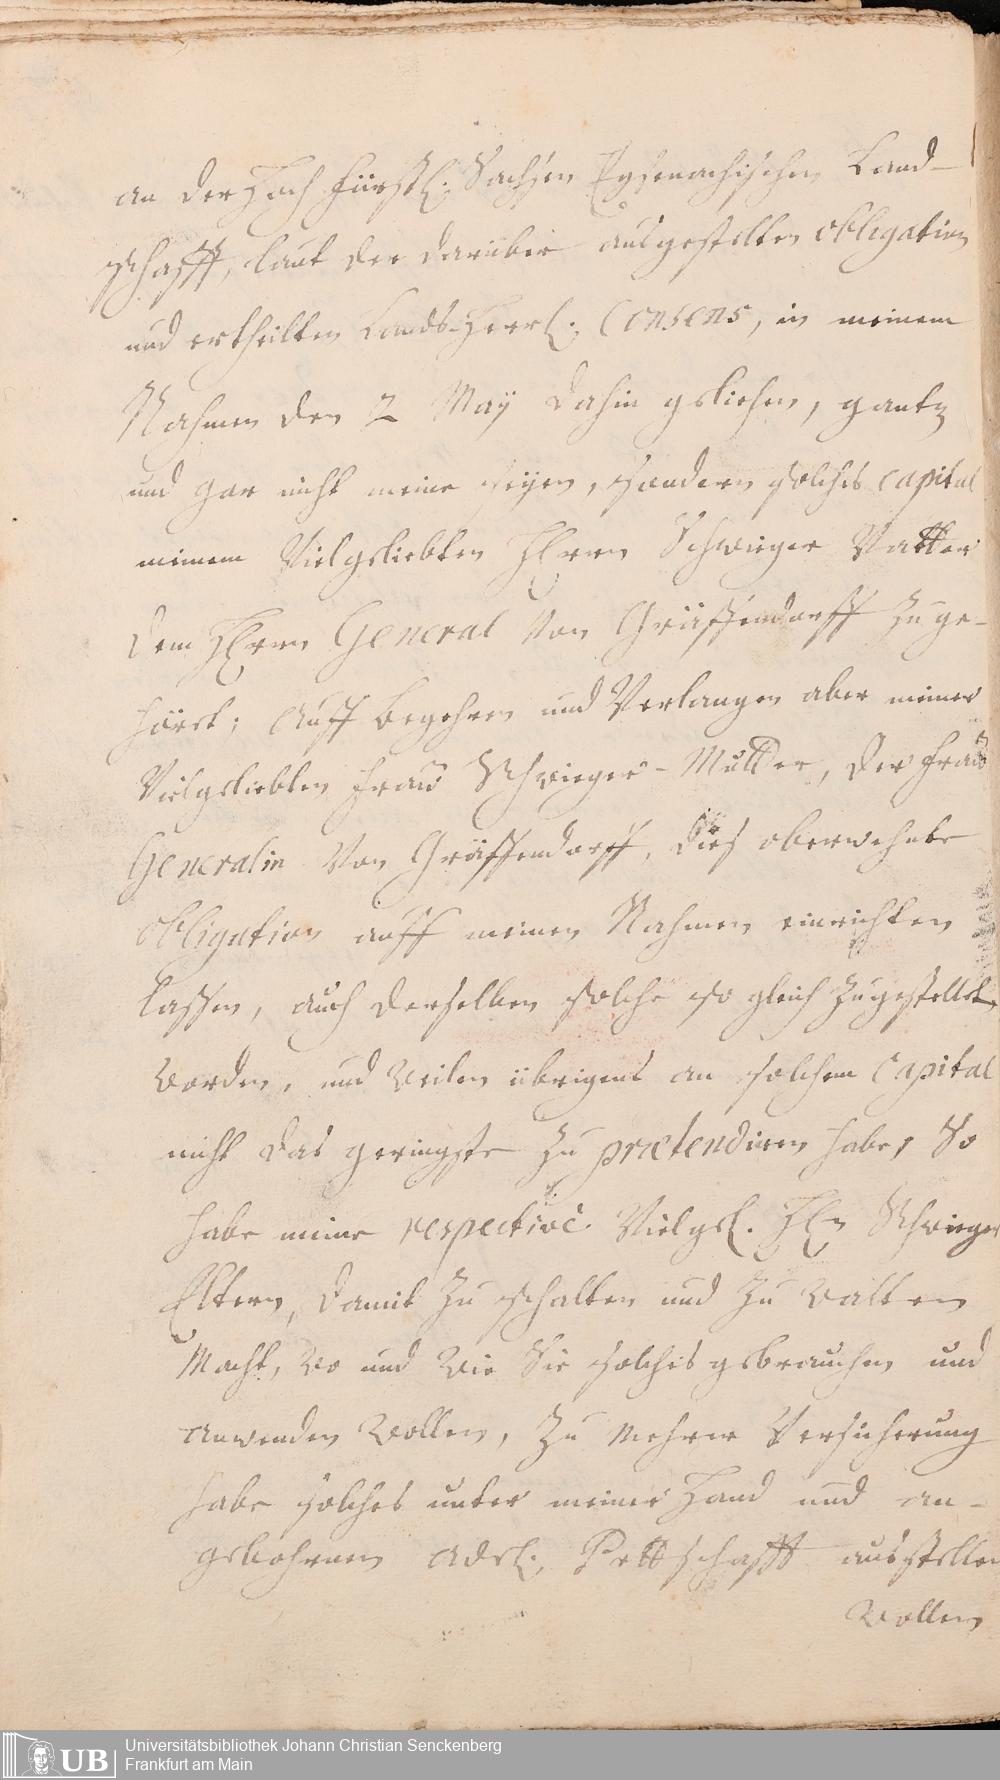 an der Hoch Fürstl. Sachsen Eysenachischen Land-
schafft, laut der darüber ausgestelten obligation
und ertheilten Lands-Herrl. Consens, in meinem
Nahmen den 2 May dahin geliehen, gantz
und gar nicht meine seyen, sondern solches Capital
meinem Vielgeliebten HErrn Schwieger Vatter
dem HErrn General von Gräffendorff zuge-
höret; Auff begehren und Verlangen aber meiner
Vielgeliebten Frau Schwieger-Mutter, der Frau
Generalin von Gräffendorff, dies oberwehnte
obligation auff meinen Nahmen einrichten
lassen, auch derselben solche so gleich zugestellet
worden, und weilen übrigens an solchem Capital
nicht das geringste zu prætendiren habe, So
habe meine respective Vielgel. HEn Schwieger
Eltern, damit zu schalten und zu walten
Macht, wo und wie Sie solches gebrauchen und
anwenden wollen, zu mehrer Versicherung
habe solches unter meiner Hand und an-
gebohrnen adel. Pettschafft ausstellen
wollen
Universitätsbibliothek Johann Christian Senckenberg
UB Frankfurt am Main